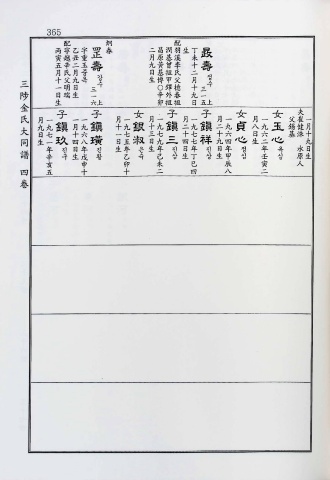 365
三陟金氏大同譜 四卷
最壽 최수
三一五上
丁未十二月十九日
生
罡壽 강수
三一六上
炯春
乙丑二月九日生
丙寅五月十一日生
一月十九日生
夫崔健洙 永原人
父錫基
女玉心 옥심
一九六二年壬寅二
月八日生
女貞心 정심
一九六四年甲辰八
月二十九日生
子鎭祥 진상
一九七七年丁巳四
月二十四日生
子鎭三 진삼
一九七九年己未二
月十三日生
女銀淑 은숙
一九七五年乙卯十
月十一日生
子鎭璜 진황
一九六八年戊申十
一月十四日生
子鎭玖 진구
一九七一年辛亥五
月九日生